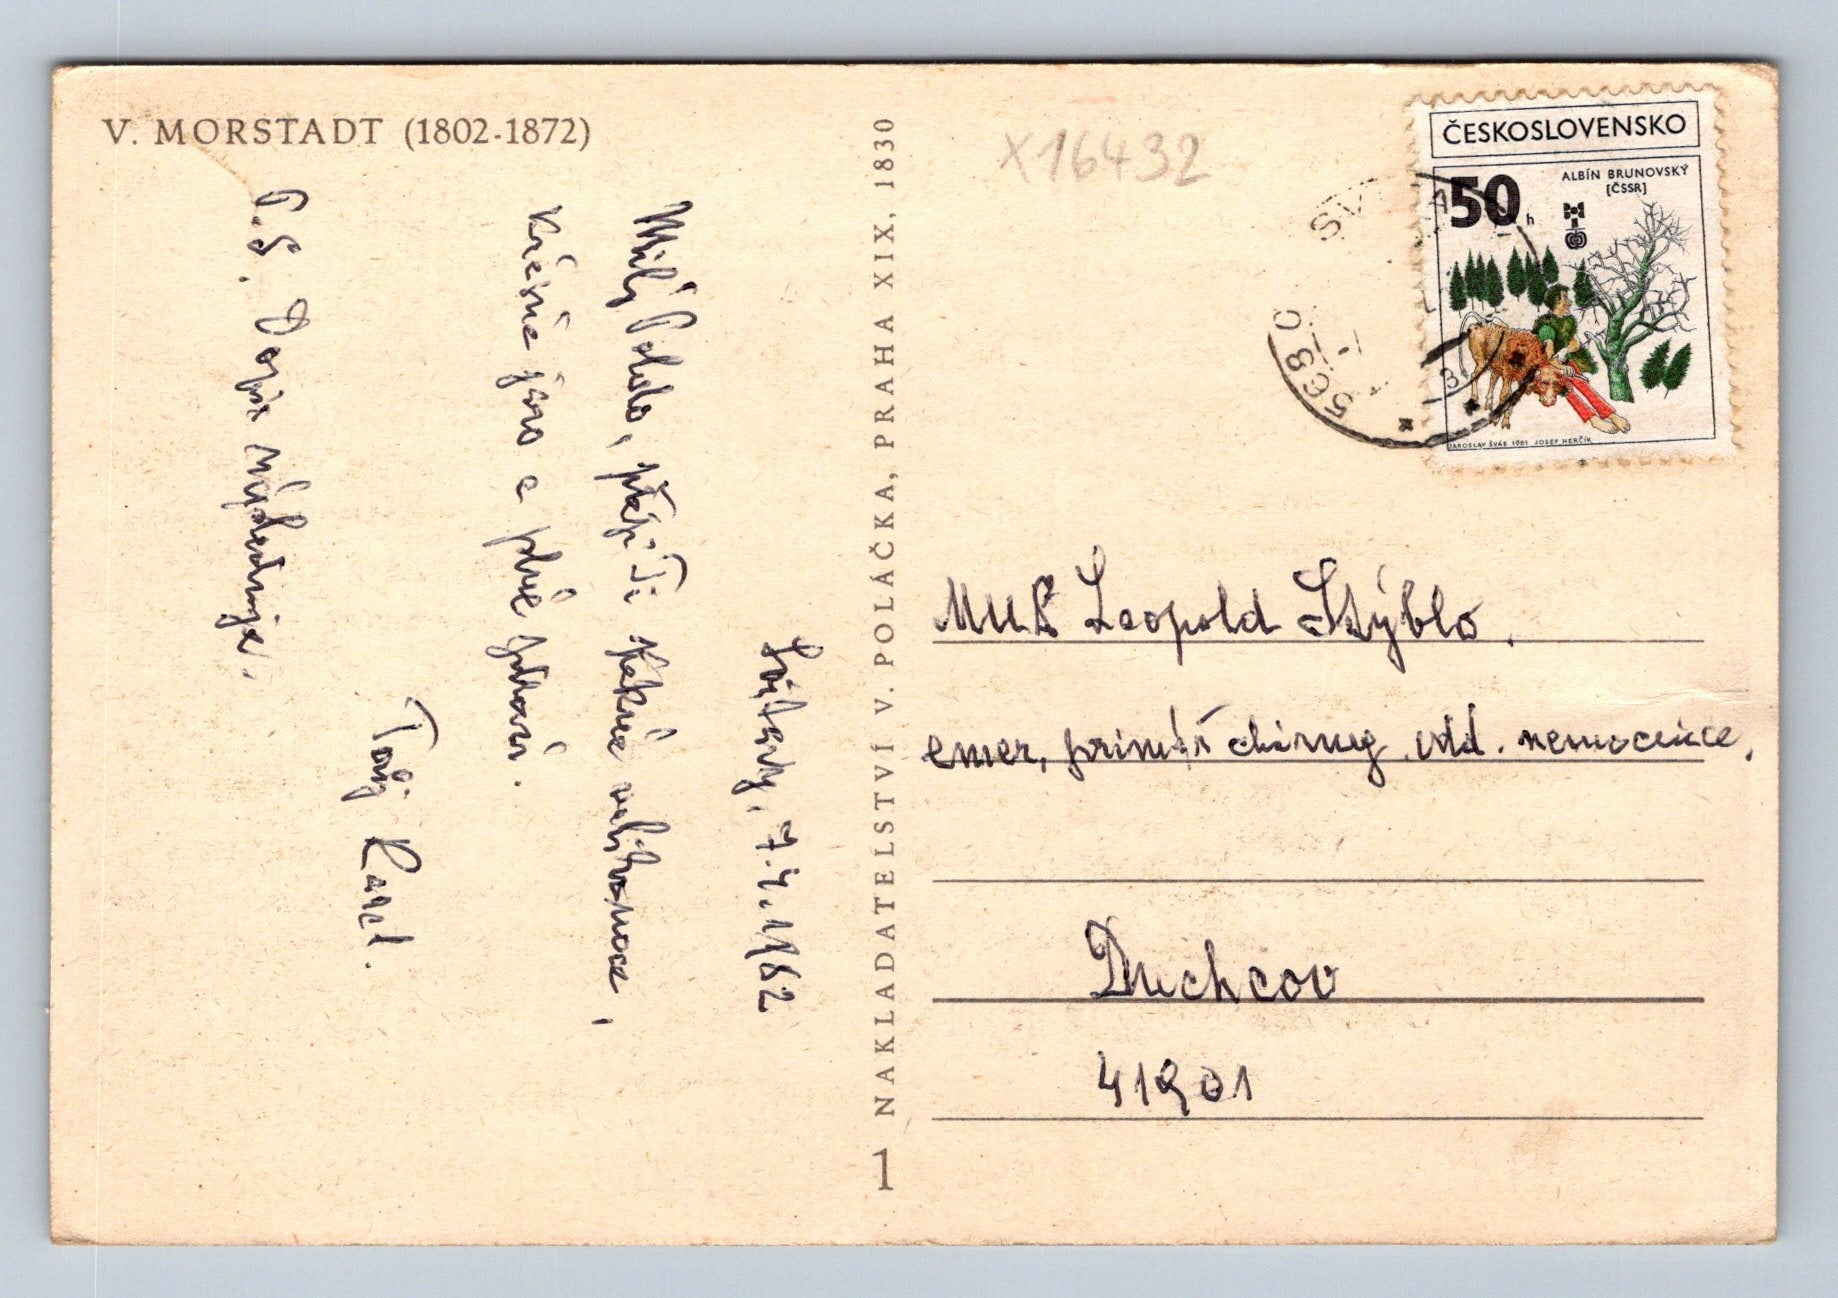 V. MORSTADT (1802-1872)
Svitavy, 7.4.1982
Milý Poldo, přeji Ti pěkné velikonoce,
krásné jaro a plné zdraví.
Tvůj Karel.
P.S. Dopis následuje.
NAKLADATELSTVÍ V. POLÁČKA, PRAHA XIX, 1830
1
X16432
ČESKOSLOVENSKO
50 h
ALBÍN BRUNOVSKÝ
[ČSSR]
JAROSLAV ŠVÁB 1981 JOSEF HERČÍK
568 0
MUDr Leopold Stýblo.
emer. primář chirurg. odd. nemocnice,
Duchcov
41901